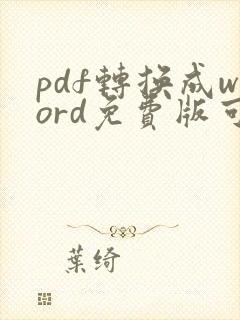 pdf轉換成w
ord免費版可
葉綺